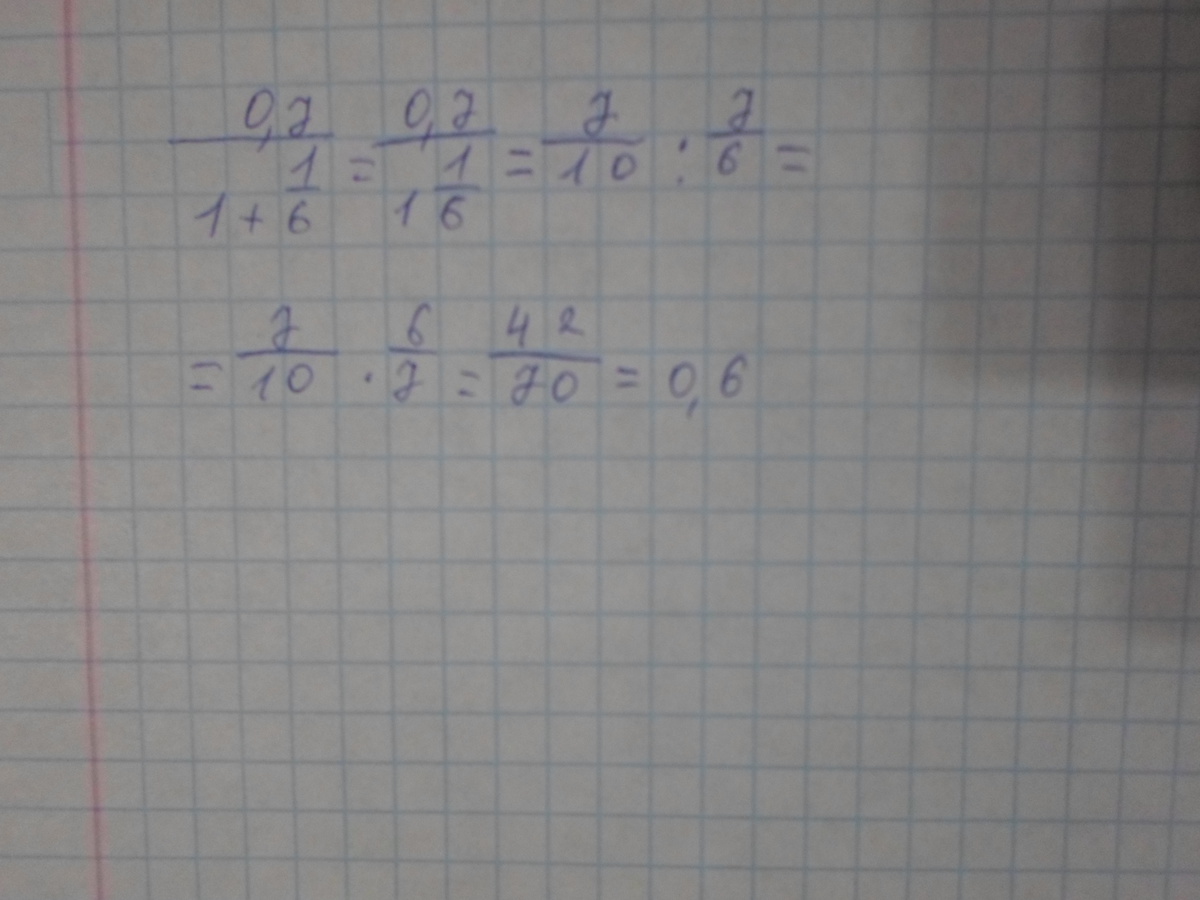 0,7/(1 + 1/6) = 0,7/(1 1/6) = 7/10 : 7/6 =
= 7/10 · 6/7 = 42/70 = 0,6